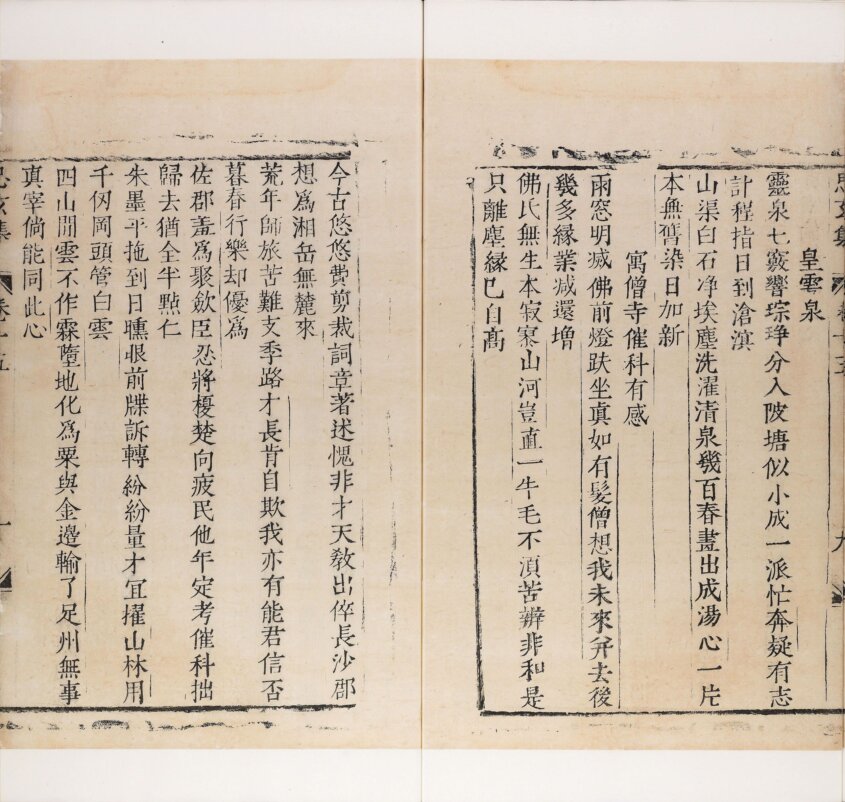 思玄集 卷十五 九
皇雩泉
靈泉七竅響琮琤分入陂塘似小成一派忙奔疑有志
計程指日到滄溟
山渠白石净埃塵洗濯清泉幾百春畫出成湯心一片
本無瑿染日加新
寓僧寺催科有感
雨窓明滅佛前燈趺坐真如有髮僧想我未來并去後
幾多緣業减還增
佛氏無生本寂寥山河豈直一牛毛不湏苦辨非和是
只離塵緣已自高
今古悠悠費剪裁詞章著述愧非才天教出倅長沙郡
想爲湘岳無麓來
荒年師旅苦難支季路才長肯自欺我亦有能君信否
暮春行樂却優爲
佐郡羞爲聚歛臣忍將榎楚向疲民他年定考催科拙
歸去猶全半點仁
朱墨平拖到日曛眼前牒訴轉紛紛量才冝擢山林用
千仭岡頭管白雲
四山閒雲不作霖墮地化爲粟與金邉輸了足州無事
真宰倘能同此心
思玄集 卷十五 十